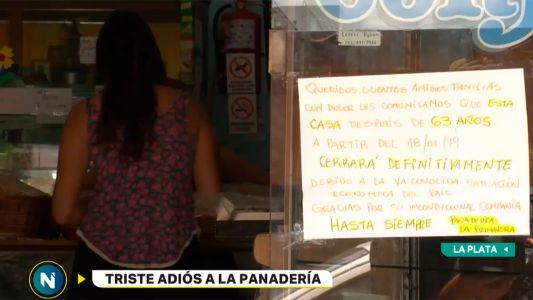 QUERIDOS CLIENTES AMIGOS FAMILIAS
CON DOLOR LES COMUNICAMOS QUE ESTA
CASA DESPUES DE 63 AÑOS
A PARTIR DEL 18/01/19
CERRARÁ DEFINITIVAMENTE
DEBIDO A LA YA CONOCIDA SITUACIÓN
ECONOMICA DEL PAIS
GRACIAS POR SU INCONDICIONAL COMPAÑIA
HASTA SIEMPRE PANADERIA
LA PRIMAVERA
LA PLATA
N
TRISTE ADIÓS A LA PANADERÍA